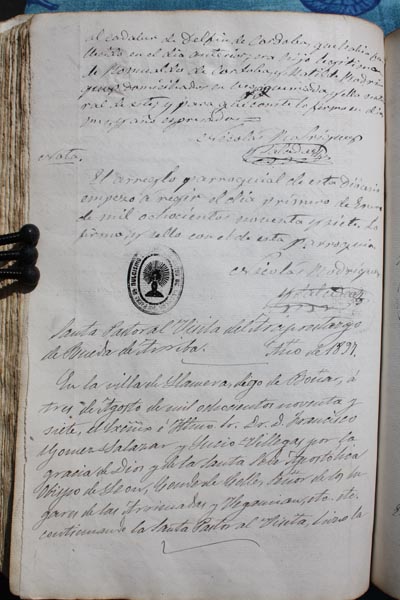 al cadaver de Delfin de Cordoba, que habia fa
llecido en el dia anterior, era hijo legitimo
de Romualdo de Cordoba y Matilde Rodri
guez domiciliados en
ral de esta y para que conste lo firmo en dia
mes y año expresados
Nicolás Rodriguez
Nota.
El arreglo parroquial de esta Diócesis
empezo á regir el dia primero de Enero
de mil ochocientos noventa y siete. Lo
firmo y sello con el de esta Parroquia
Nicolás Rodriguez
Santa Pastoral Visita del Arciprestazgo
de Rueda de Arriba. Año de 1897.
En la villa de Llamera, digo de Boñar, á
tres de Agosto de mil ochocientos noventa y
siete, el Excmo é Iltmo Sr. Dr. D. Francisco
Gomez Salazar y Lucio Villegas, por la
gracia de Dios y de la Santa Sede Apostólica
Obispo de Leon, Conde de Colle, Señor de los lu
gares de las Arrimadas y Vegamian, etc. etc.
continuando la Santa Pastoral Visita,